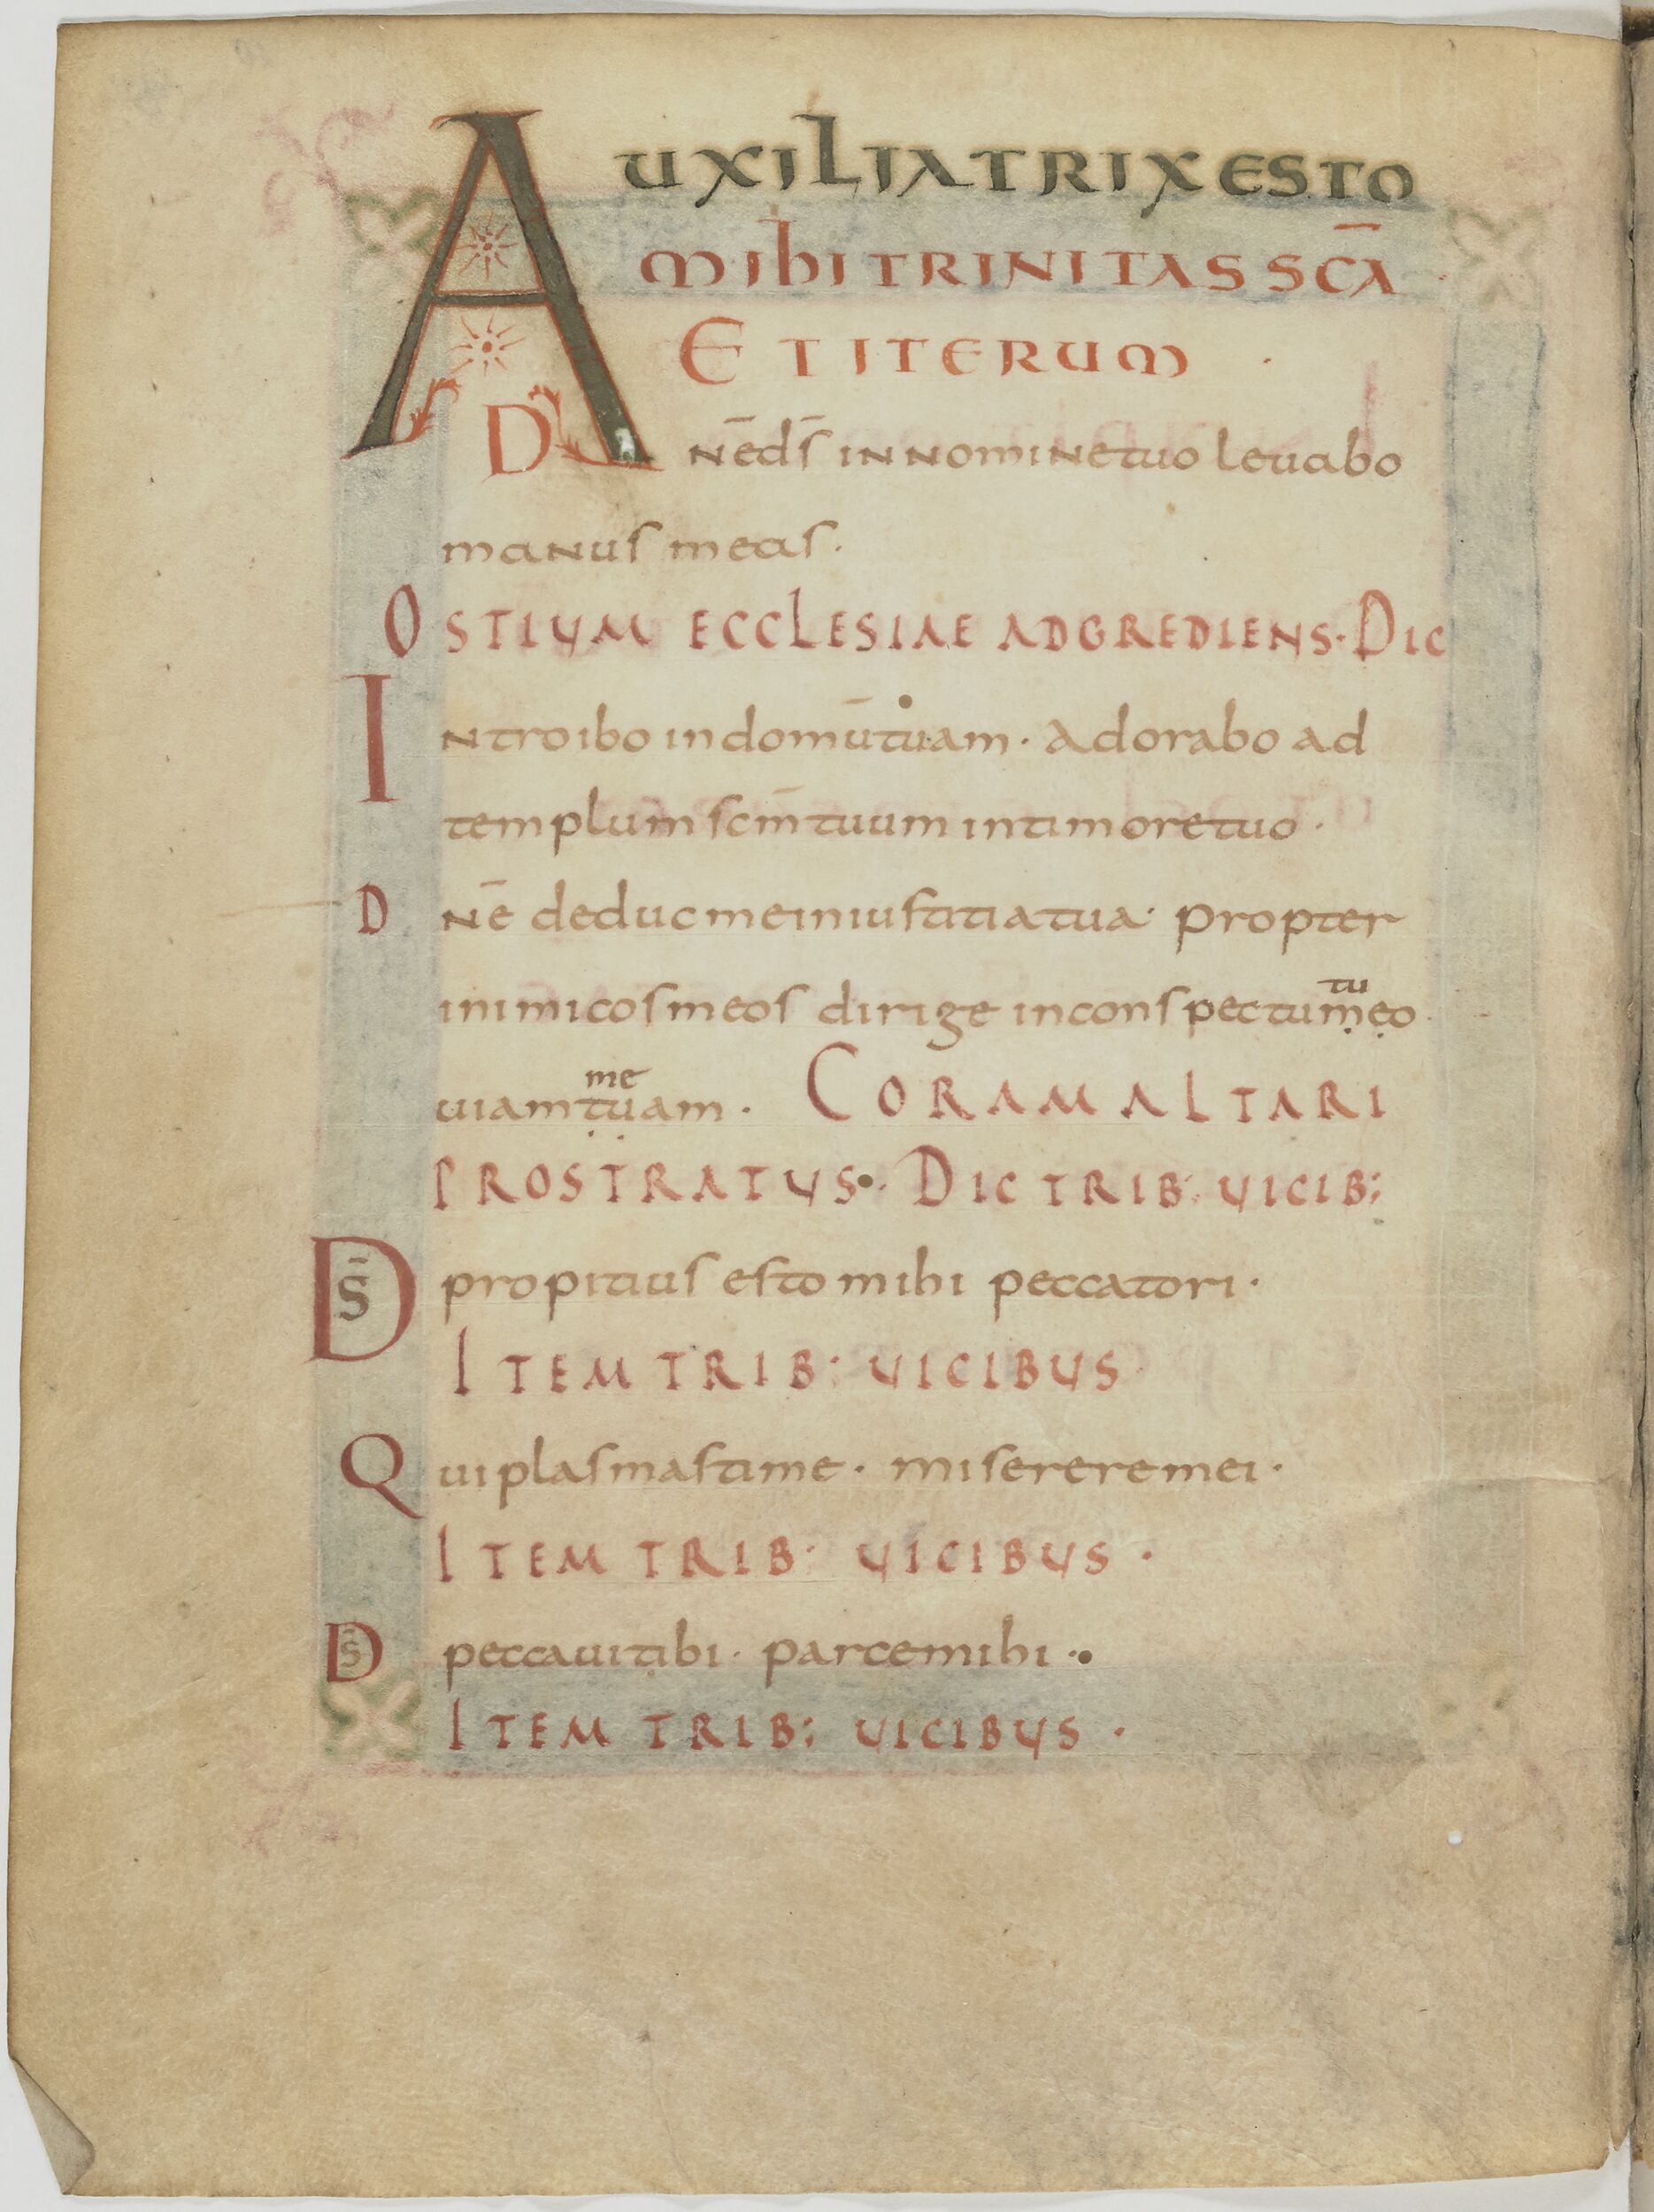 AUXILIATRIX ESTO
MIHI TRINITAS SCĀ
ET ITERUM
Dnē ds̄ in nomine tuo levabo
manus meas.
OSTIUM ECCLESIAE ADGREDIENS. DIC
Introibo in domū tuam. Adorabo ad
templum scm̄ tuum in timore tuo.
Dnē deduc me in iustitia tua. propter
inimicos meos dirige in conspectu meo
tu
viam tuam. CORAM ALTARI
me
PROSTRATUS. DIC TRIB: VICIB;
Ds̄ propitius esto mihi peccatori.
ITEM TRIB: VICIBUS
Qui plasmasti me. miserere mei.
ITEM TRIB: VICIBUS.
Ds̄ peccavi tibi. parce mihi.
ITEM TRIB; VICIBUS.